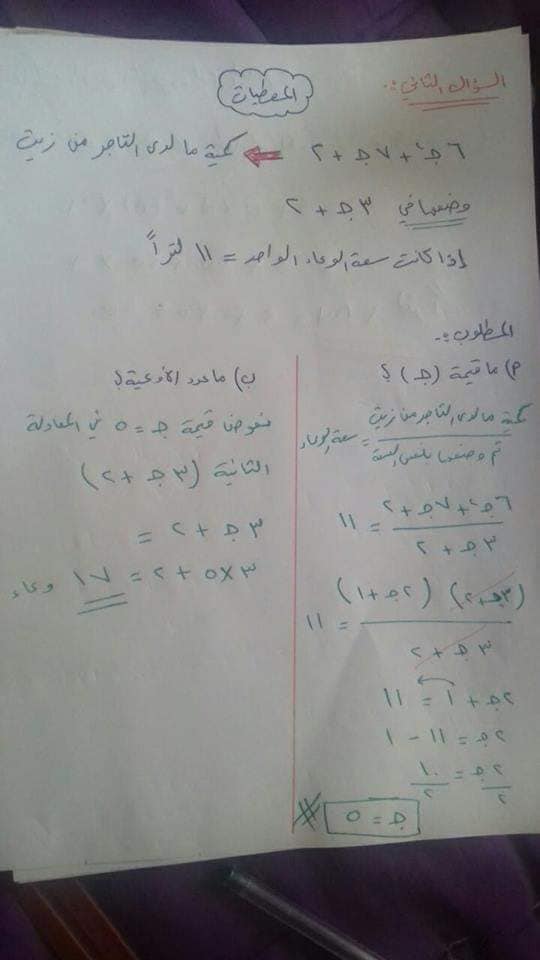 السؤال الثاني:-
المعطيات
٦جـ² + ٧جـ + ٢ ⇐ كمية ما لدى التاجر من زيت
وضعها في ٣جـ + ٢
إذا كانت سعة الوعاء الواحد = ١١ لتراً
المطلوب:-
م) ما قيمة (جـ)؟
كمية ما لدى التاجر من زيت / تم وضعها بنفس السعة = سعة الوعاء
٦جـ² + ٧جـ + ٢ / ٣جـ + ٢ = ١١
(٣جـ+٢) (٢جـ+١) / ٣جـ + ٢ = ١١
٢جـ + ١ = ١١
٢جـ = ١١ - ١
٢جـ / ٢ = ١٠ / ٢
جـ = ٥ #
ب) ما عدد الأوعية؟
نعوض قيمة جـ = ٥ في المعادلة
الثانية (٣جـ + ٢)
٣جـ + ٢ =
٣×٥ + ٢ = ١٧ وعاء